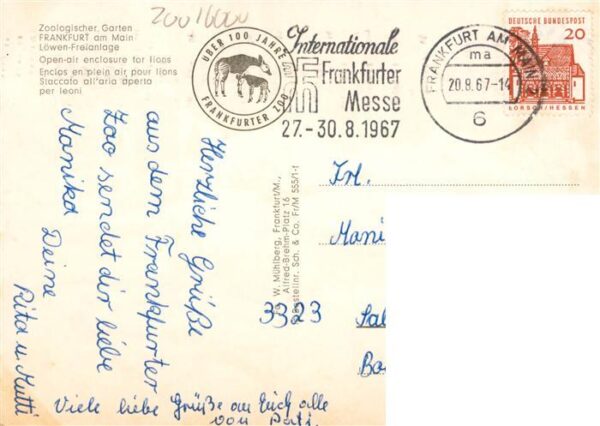 Zoo 16000
Zoologischer Garten
FRANKFURT am Main
Löwen-Freianlage
Open-air enclosure for lions
Enclos en plein air pour lions
Staccato all'aria aperta
per leoni
ÜBER 100 JAHRE ZOO
FRANKFURTER ZOO
Internationale
Frankfurter
Messe
27.-30.8.1967
FRANKFURT AM MAIN
ma
20.8.67-14
6
DEUTSCHE BUNDESPOST
20
LORSCH/HESSEN
Herzliche Grüße
aus dem Frankfurter
Zoo sendet dir liebe
Monika Deine
Rita u. Mutti
Viele liebe Grüße an Euch alle
von
W. Mühlberg, Frankfurt/M.,
Alfred-Brehm-Platz 16
Bestellnr. Sch. & Co. Fr/M 555/1-1
Frl.
Moni
3323 Sal